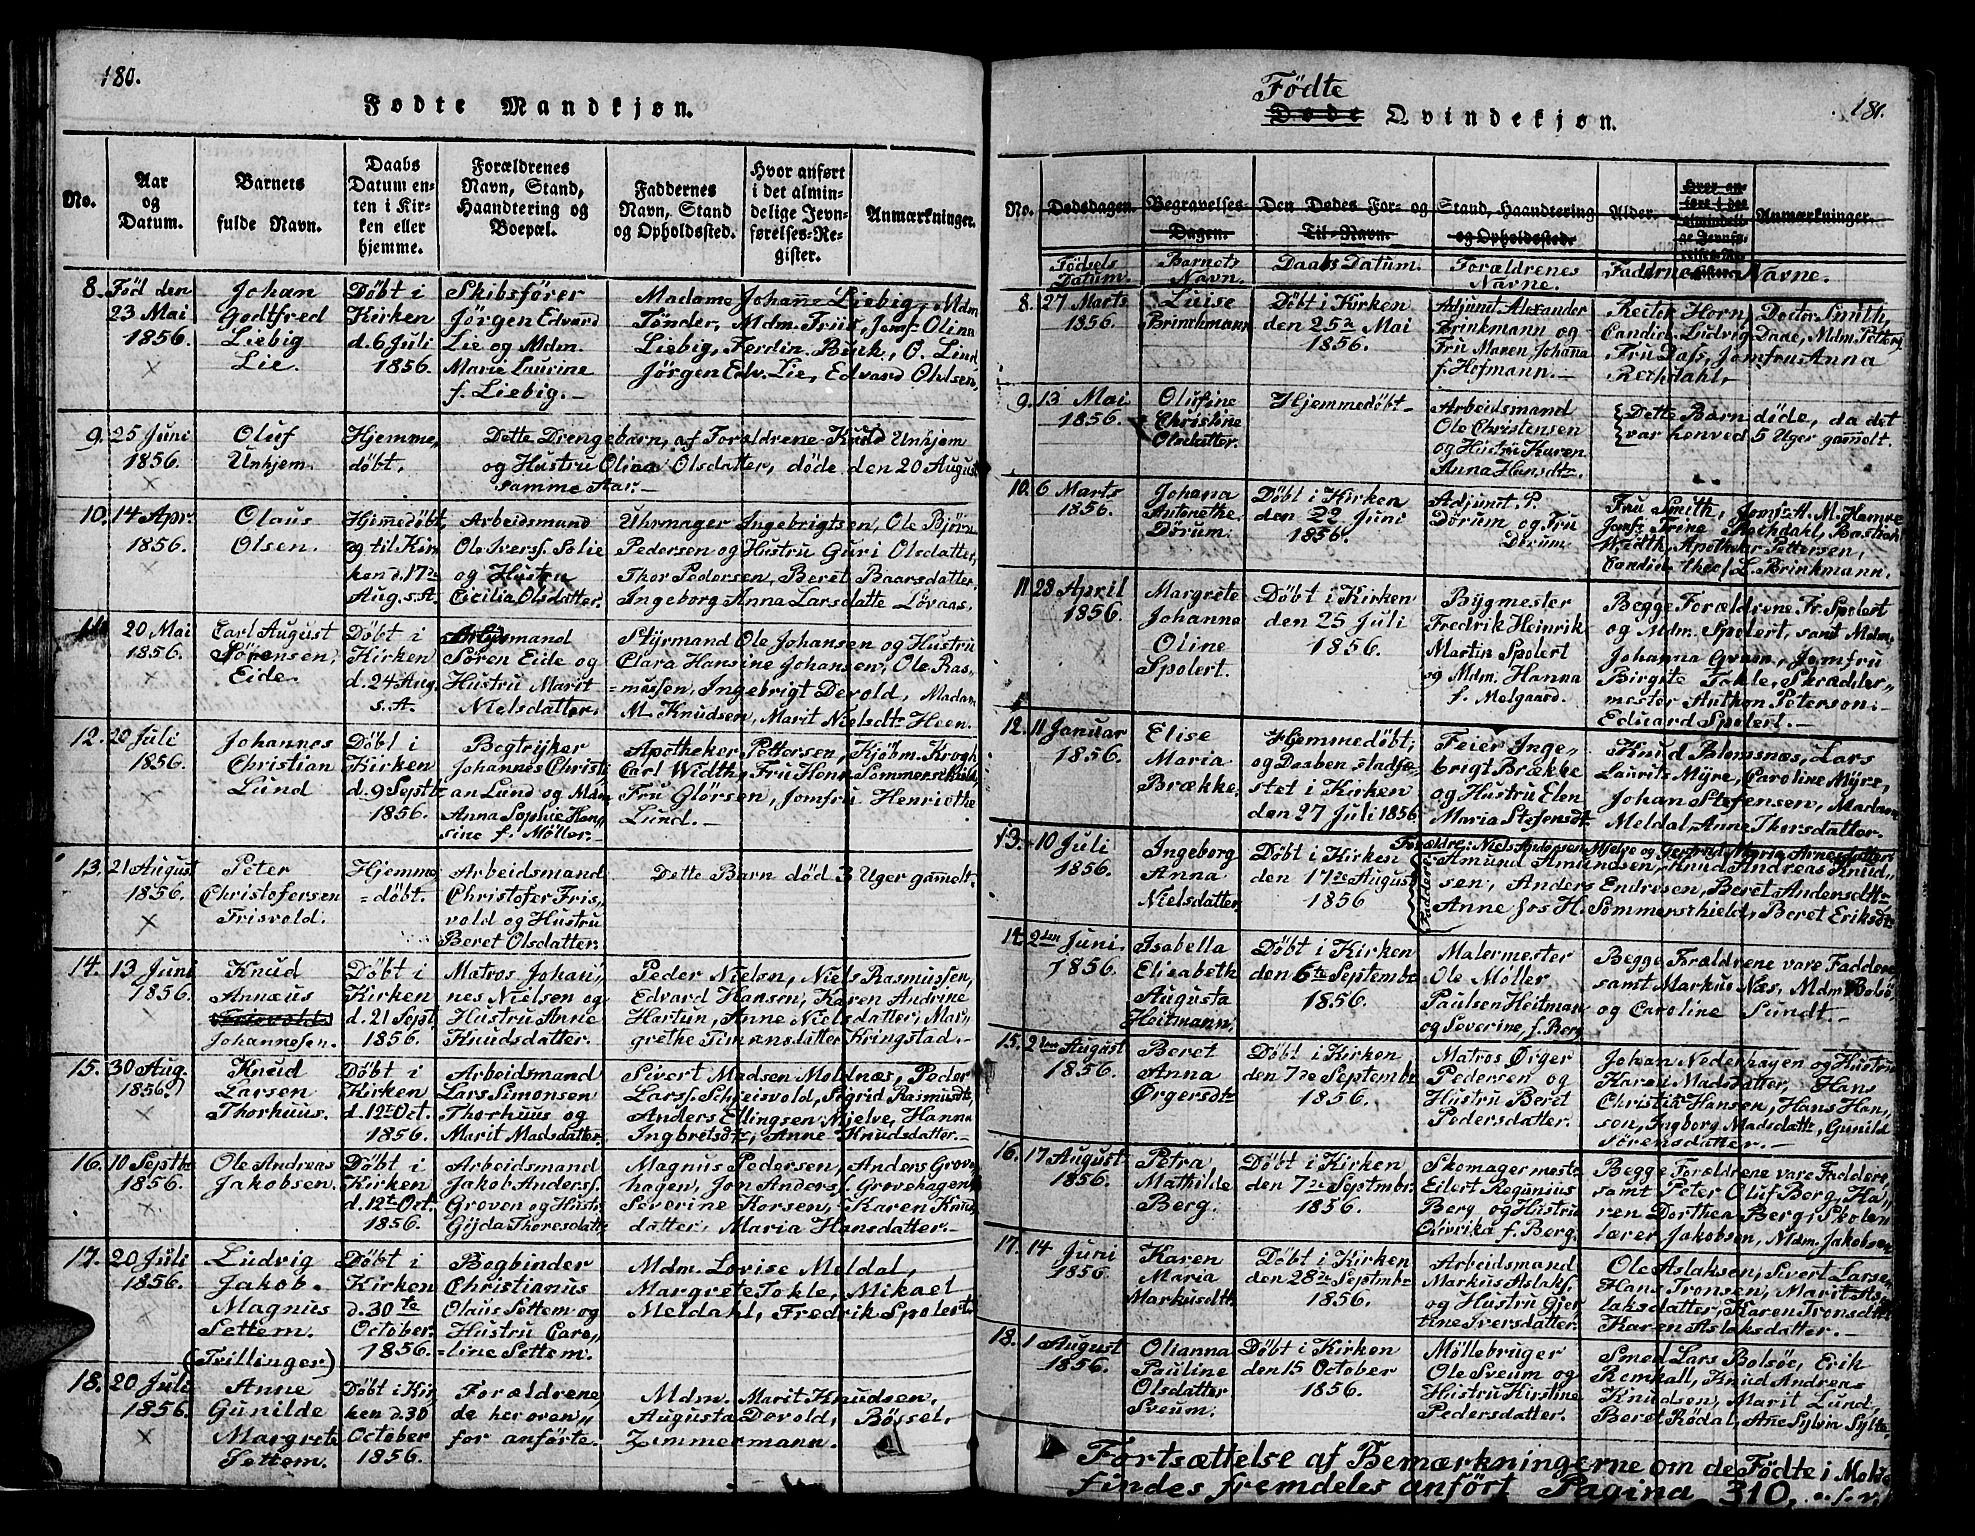 180.
Fødte Mandkjøn.
No.
Aar
og
Datum.
Barnets
fulde Navn.
Daabs
Datum en-
ten i Kir-
ken eller
hjemme.
Forældrenes
Navn, Stand,
Haandtering og
Boepæl.
Faddernes
Navn, Stand
og Opholdssted.
Hvor anført
i det almin-
delige Jevn-
førelses-Re-
gister.
Anmærkninger.
8.
Fød den
23 Mai
1856.
Johan
Godtfred
Liebig
Lie.
Døbt i
Kirken
d. 6 Juli
1856.
Skibsfører
Jørgen Edvard
Lie og Mdm.
Marie Laurine
f. Liebig.
Madame Johanne Liebig, Mdm.
Tønder, Mdm. Friis, Jomf. Olina
Liebig, Ferdin. Buck, O. Lind,
Jørgen Edv. Lie, Edvard Ohlsen,
9.
25 Juni
1856.
Oluf
Unhjem.
Hjemme,
døbt.
Dette Drengebarn, af Forældrene Knud Unhjem
og Hustru Olina Olsdatter, døde den 20 August
samme Aar.
10.
14 Apr.
1856.
Olaus
Olsen.
Hjemedøbt,
og til Kir
ken d. 17de
Aug. s. A.
Arbeidsmand
Ole Iverss. Solie
og Hustru
Cicilia Olsdatter.
Uhrmager Ingebrigtsen, Ole Bjørn
Pedersen og Hustru Guri Olsdatter,
Thor Pedersen, Beret Baarsdatter,
Ingeborg Anna Larsdatte Løvaas.
11.
20 Mai
1856.
Carl August
Sørensen,
Eide.
Døbt i
Kirken
d. 24 Aug.
s. A.
Søren Eide og
Hustru Marit
Nielsdatter.
Styrmand Ole Johansen og Hustru
Clara Hansine Johansen, Ole Ras-
=mussen, Ingebrigt Devold, Madam
M. Knudsen, Marit Nielsdtr Heen.
12.
20 Juli
1856.
Johannes
Christian
Lund
Døbt i
Kirken
d. 9 Septbr
1856.
Bogtrijker
Johannes Christi
an Lund og Mdm
Anna Sophie Han,,
sine f. Møller.
Apotheker Pettersen, Kjöbm. Krogh,
Carl Width, Fru Henr. Sommerschield,
Fru Glørsen, Jomfru Henriethe
Lund.
13.
21 August
1856.
Peter
Christofersen
Frisvold.
Hjemme
=døbt.
Arbeidsmand
Christofer Fris,,
vold og Hustru
Beret Olsdatter.
Dette Barn død 3 Uger gamelt.
14.
13 Juni
1856.
Knud
Annæus
Johannesen.
Døbt i
Kirken
d. 21 Sept
1856.
Matros Johan,,
nes Nielsen og
Hustru Anne
Knudsdatter.
Peder Nielsen, Niels Rasmussen,
Edvard Hansen, Karen Andrine
Hartun, Anne Nielsdatter, Mar,
grethe Timansdatter Kringstad.
15.
30 Aug.
1856.
Knud
Larsen
Thorhuus.
Døbt i
Kirken
d. 12te Oct.
1856.
Arbeidsmand
Lars Simonsen
Thorhuus og
Marit Madsdatter.
Sivert Madsen Moldnæs, Peder
Larss. Schreisvold, Sigrid Rasmusdtr
Anders Ellingsen Mjelve, Hanna
Ingbretsdtr, Anne Knudsdatter.
16.
10 Septbr
1856.
Ole Andreas
Jakobsen.
Døbt i
Kirken
d. 12te Oct.
1856.
Arbeidsmand
Jakob Anderss.
Groven og Hustru
Gijda Thoresdatter
Magnus Pedersen, Anders Grove
hagen, Jon Anderss. Grovehagen,
Severine Korsen, Karen Knus
datter, Maria Hansdatter.
17.
20 Juli
1856.
Ludvig
Jakob
Magnus
Settem.
(Tvillinger)
Døbt i
Kirken
d. 30te
October
1856.
Bogbinder
Christianus
Olaus Settem og
Hustru Caro,,
=line Settem.
Mdm. Lovise Meldal,
Margrete Tokle, Mikael
Meldahl, Fredrik Spolert.
18.
20 Juli
1856.
Anne
Gunilde
Margrete
Settem.
Døbt i Kir
ken d. 30
October
1856.
Forældrene,
de her oven,,
for anførte.
Mdm. Marit Knudsen,
Augusta Dovold, Bössel,
Zimmermann.
181.
Fødte
Døde Qvindekjøn.
No.
Dødsdagen.
Begravelses-
Dagen.
Den Dødes For- og
Til-Navn.
Stand, Haandtering
og Opholdssted.
Alder.
Hvor an-
ført i det
almindeli-
ge Jevnfø-
relses-Re-
gister.
Anmærkninger.
Fødsels
Datum.
Barnets
Navn.
Daabs Datum.
Forældrenes
Navne.
Faddernes Navne.
8.
27 Marts
1856.
Luise
Brinchmann
Døbt i Kirken
den 25de Mai
1856.
Adjunct Alexander
Brinkmann og
Fru Maren Johana
f. Hofmann.
Rector Horn, Doctor Smith,
Candid. Ludvig Daae, Mdm. Petters.
Fru Dass, Jomfru Anna
Rechdahl,
9.
13 Mai
1856.
Olufine
Christine
Olsdatter.
Hjemmedøbt
Arbeidsmand
Ole Christensen
og Hustru Karen
Anna Hansdtr
Dette Barn døde, da det
var henved 5 Uger gamelt.
10.
6 Marts
1856.
Johana
Antonethe
Dørum.
Døbt i Kirken
den 22 Juni
1856.
Adjunct. P.
Dørum og Fru
Dørum.
Fru Smith, Jomf. A. M. Hamre
Jomf. Trine Rechdahl, Bastian
Width, Apotheker Pettersen,
Candid. theol. L. Brinkmann.
11.
28 April
1856.
Margrete
Johanne
Oline
Spolert.
Døbt i Kirken
den 25 Juli
1856.
Bijgmester
Fredrik Heinrik
Martin Spolert
og Mdm. Hanna
f. Melgaard.
Begge Forældrene Fr. Spolert
og Mdm. Spolert, samt Mdm.
Johanna Grøen, Jomfru
Birgite Tokle, Skrædder,,
mester Anthon Peterson,
Eduard Spolert.
12.
11 Januar
1856.
Elise
Maria
Brække.
Hjemmedøbt,
og Daaben stadfæ
stet i Kirken
den 27 Juli 1856
Feier Inge,
brigt Brække
og Hustru Elen
Maria Stefensdtr
Knud Blomsnæs, Lars
Laurits Myre, Caroline Myrs,
Johan Stefensen, Madam
Meldal, Anne Thersdatter.
13.
10 Juli
1856.
Ingeborg
Anna
Nielsdatter.
Døbt i Kirken
den 17de August
1856
Forældre: Niels Andersen Mjelve og Gertrud Maria Arnesdatter
Faddere
Amund Amundsen, Knud Andreas Knud,
sen, Anders Endresen, Beret Andersdtr
Anne Jos H. Sommerschield, Beret Eriksdtr
14.
2den Juni
1856.
Isabella
Elisabeth
Augusta
Heitmann.
Døbt i Kirken
den 6te Septembr
1856.
Malermester
Ole Møller
Paulsen Heitman
og Severine, f. Berg
Begge Forældrene vare Faddere
samt Markus Næs, Mdm. Bolsø
og Caroline Sundt.
15.
2den August
1856.
Beret
Anna
Ørgersdtr
Døbt i Kirken
den 7de Septembr
1856.
Matros Ørger
Pedersen og
Hustru Beret
Pedersdatter.
Johan Nedenhagen og Hustru
Karen Madsdatter, Hans
Christian Hansen, Hans Han,,
sen, Ingborg Madsdattr, Gunild
Sørensdatter.
16.
17 August
1856.
Petra
Mathilde
Berg.
Døbt i Kirken
den 7de Septmbr.
1856.
Skomagermeste
Eilert Regunius
Berg og Hustru
Olivrika f. Berg.
Begge Forældrene vare Faddere,
samt Peter Oluf Berg, Ka,,
ren Dorthea Berg, Skolen
lærer Jakobsen, Mdm. Jakobsen
17.
14 Juni
1856.
Karen
Maria
Markusdtr.
Døbt i Kirken
den 28de Septmbr
1856.
Arbeidsmand
Markus Aslaks.
og Hustru Gjer
tine Iversdatter.
Ole Aslaksen, Sivert Larse,
Hans Tronsen, Marit As
laksdatter, Karen Tronsdtr
Karen Aslaksdatter.
18.
1 August
1856.
Olianna
Pauline
Olsdatter
Sveum.
Døbt i Kirken
den 15 October
1856.
Møllebruger
Ole Sveum og
Hustru Kirstine
Pedersdatter.
Smed Lars Bolsöe, Erik
Remhall, Knud Andreas
Knudsen, Marit Lund,
Beret Rödal, Ane Sylvia Sylte
Fortsættelse af Bemærkningerne om de Fødte i Molde
findes fremdeles anført Pagina 310.